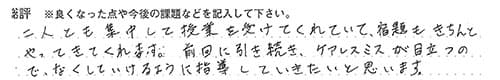 ※良くなった点や今後の課題などを記入して下さい。
二人とも集中して授業を受けてくれていて、宿題もきちんと
やってきてくれます。前回に引き続き、ケアレスミスが目立つの
で、なくしていけるように指導していきたいと思います。